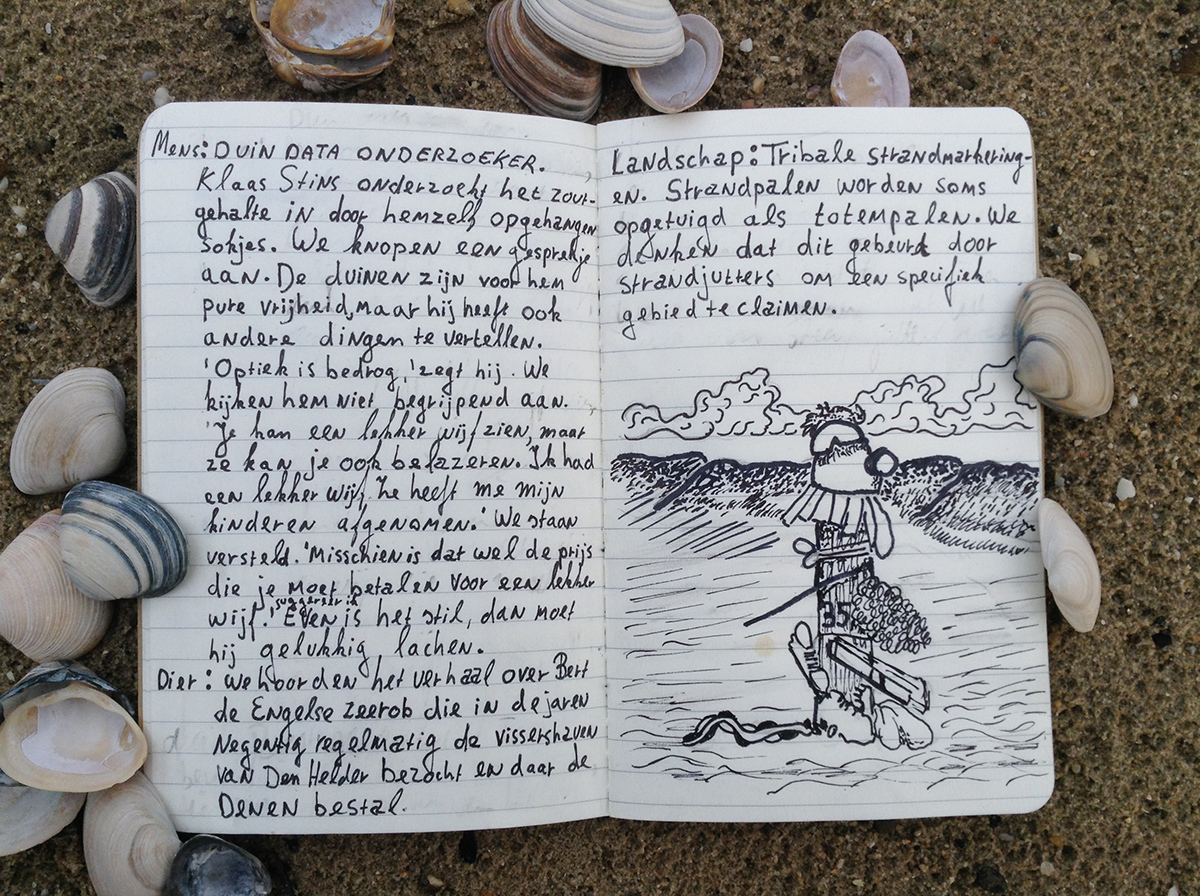 Mens: DUIN DATA ONDERZOEKER.
Klaas Stins onderzocht het zout-
gehalte in door hemzelf opgehangen
sokjes. We knopen een gesprekje
aan. De duinen zijn voor hem
pure vrijheid, maar hij heeft ook
andere dingen te vertellen.
'Optiek is bedrog,' zegt hij. We
kijken hem niet begrijpend aan.
'Je kan een lekker wijf zien, maar
ze kan je ook belazeren. Ik had
een lekker wijf, ze heeft me mijn
kinderen afgenomen.' We staan
versteld. 'Misschien is dat wel de prijs
die je moet betalen voor een lekker
suggereer ik
wijf.' Even is het stil, dan moet
hij gelukkig lachen.
Dier: We hoorden het verhaal over Bert
de Engelse zeerob die in de jaren
Negentig regelmatig de vissershaven
van Den Helder bezocht en daar de
Denen bestal.
Landschap: Tribale strandmarkering-
en. Strandpalen worden soms
opgetuigd als totempalen. We
denken dat dit gebeurt door
strandjutters om een specifiek
gebied te claimen.
35